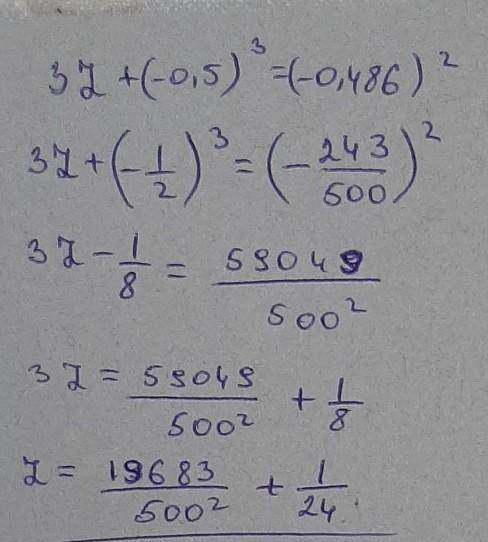 3Z + (-0,5)³ = (-0,486)²
3Z + (-1/2)³ = (-243/500)²
3Z - 1/8 = 59049/500²
3Z = 59049/500² + 1/8
Z = 19683/500² + 1/24